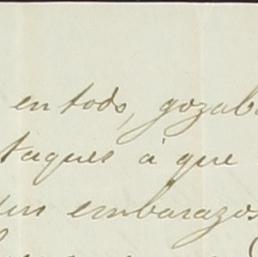 en todo, gozab
taques á que
embarazos